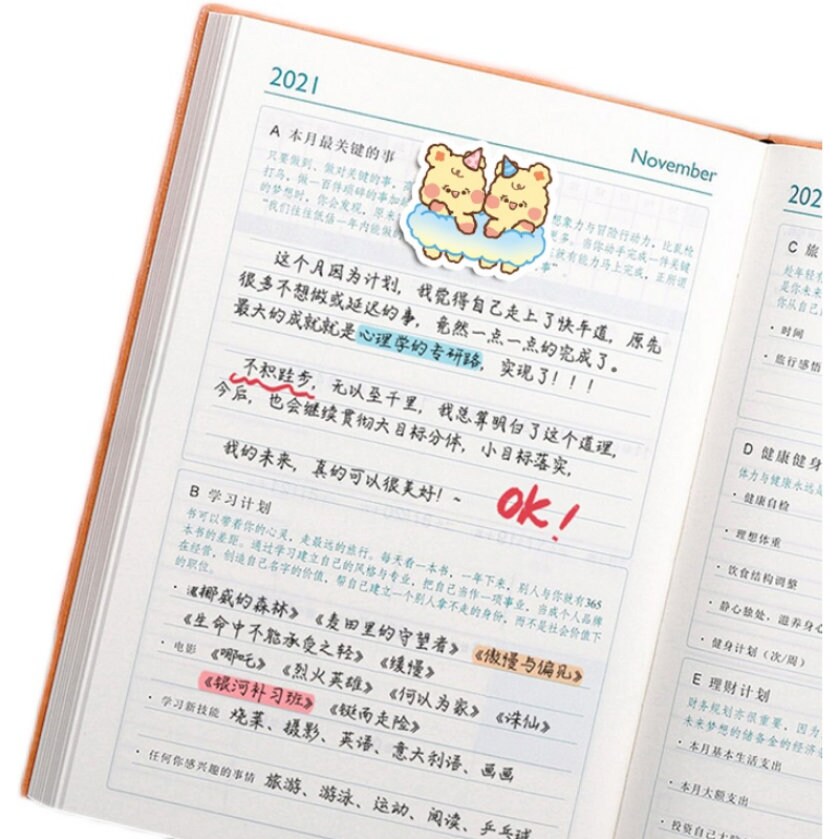 2021
November
A 本月最关键的事
只要做到、做对关键的事，
打鸟，做一百件琐碎的事加
的梦想时，你会发现，原来
“我们往往低估一年内能做
想象力与冒险行动力，比乱枪
更多。当你动手完成一件关键
就有能力马上完成，正所谓
事”
这个月因为计划，我觉得自己走上了快车道，原先
很多不想做或延迟的事，竟然一点一点的完成了。
最大的成就就是心理学的专研路，实现了！！！
不积跬步，无以至千里，我总算明白了这个道理，
今后，也会继续贯彻大目标分体，小目标落实，
我的未来，真的可以很美好！~
OK!
B 学习计划
书可以带着你的心灵，走最远的旅行。每天看一本书，一年下来，别人与你就有365
本书的差距。通过学习建立自己的风格与专业，把自己当作一项事业，当成个人品牌
在经营，创造自己名字的价值，帮自己建立一个别人拿不走的身份，而不是社会价值下
的职位。
·《挪威的森林》《麦田里的守望者》《傲慢与偏见》
《生命中不能承受之轻》《缓慢》
·电影《哪吒》《烈火英雄》《何以为家》《诛仙》
《银河补习班》《铤而走险》
·学习新技能 烧菜、摄影、英语、意大利语、画画
·任何你感兴趣的事情 旅游、游泳、运动、阅读、乒乓球
202
C 旅
趁年轻有
是你未来
你从自己
·时间
·旅行感悟
D 健康健身
体力与健康永远是
·健康自检
·理想体重
·饮食结构调整
·静心独处，滋养身心
·健身计划（次/周）
E 理财计划
财务规划亦很重要，因为
未来梦想的储备金的经济
·本月基本生活支出
·本月大额支出
·投资自己大